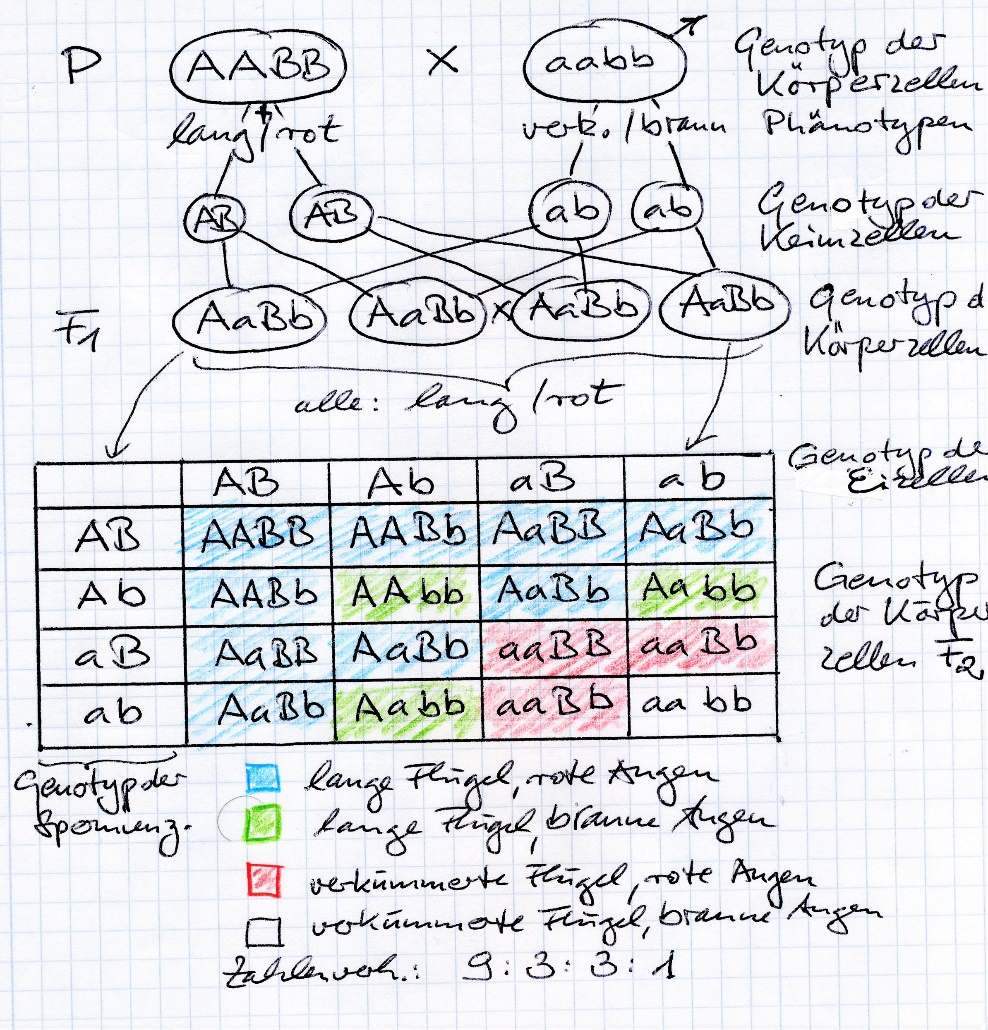 P AABB x aabb Genotyp der
Körperzellen
lang/rot verk./braun Phänotypen
AB AB ab ab Genotyp der
Keimzellen
F1 AaBb AaBb x AaBb AaBb Genotyp d
Körperzellen
alle: lang/rot
Genotyp de
Eizellen
AB Ab aB ab
AB AABB AABb AaBB AaBb
Ab AABb AAbb AaBb Aabb
aB AaBB AaBb aaBB aaBb
ab AaBb Aabb aaBb aabb
Genotyp
der Körper
zellen F2
Genotyp der
Spermienz.
lange Flügel, rote Augen
lange Flügel, braune Augen
verkümmerte Flügel, rote Augen
verkümmerte Flügel, braune Augen
Zahlenverh.: 9:3:3:1